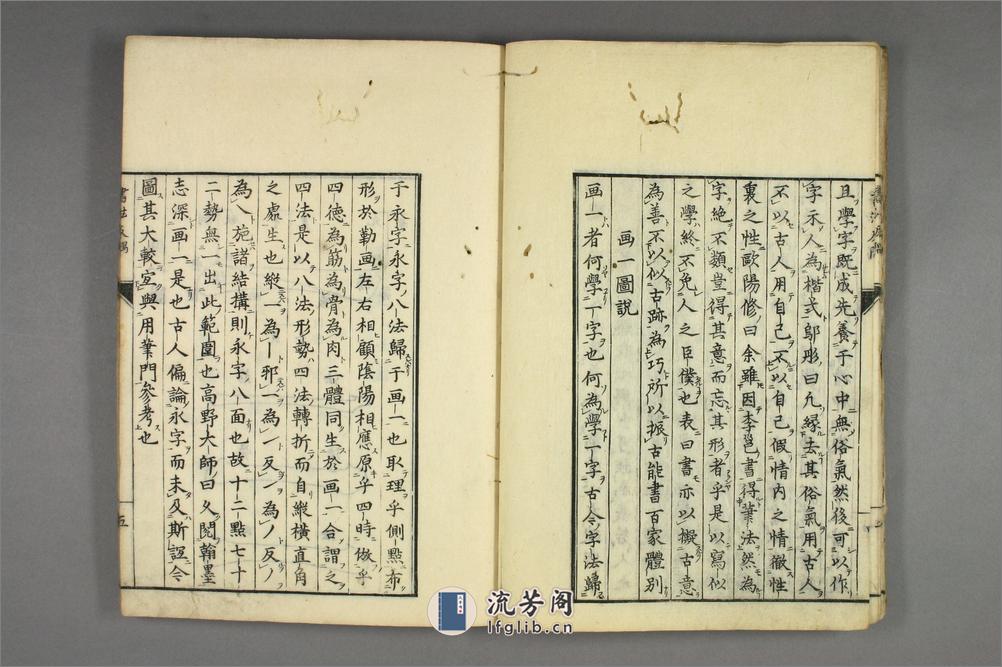 且學字既成先養于心中無俗氣然後可以作
字示人為楷式邬彤曰凡緣去其俗氣用古人
不以古人用自己不以自己假情内之情徹性
裏之性歐陽修曰余雖因李邕書得筆法然為
字絶不類豈得其意而忘其形者乎是以寫似
之學終不免人之臣僕也表曰書亦以擬古意
為善不以似古跡為巧所以振古能書百家體別
画一圖説
画一者何學一字也何為學一字古今字法歸
于永字永字八法歸于画一也取理乎側點布
形於勒画左右相顧陰陽相應原乎四時倣乎
四德為筋為骨為肉三體同生於画一合謂之
四法是以八法形勢四法轉折而自縱横直角
之處生也縱一為丨邪一為丶反丶為丿反丿
為乀施諸結構則永字八面也故十二點七十
二勢無一出此範圍也高野大師曰久閲翰墨
志深画一是也古人偏論永字而未及斯誼今
圖其大較宜與用筆門參考也
五
流芳阁
lfglib.cn